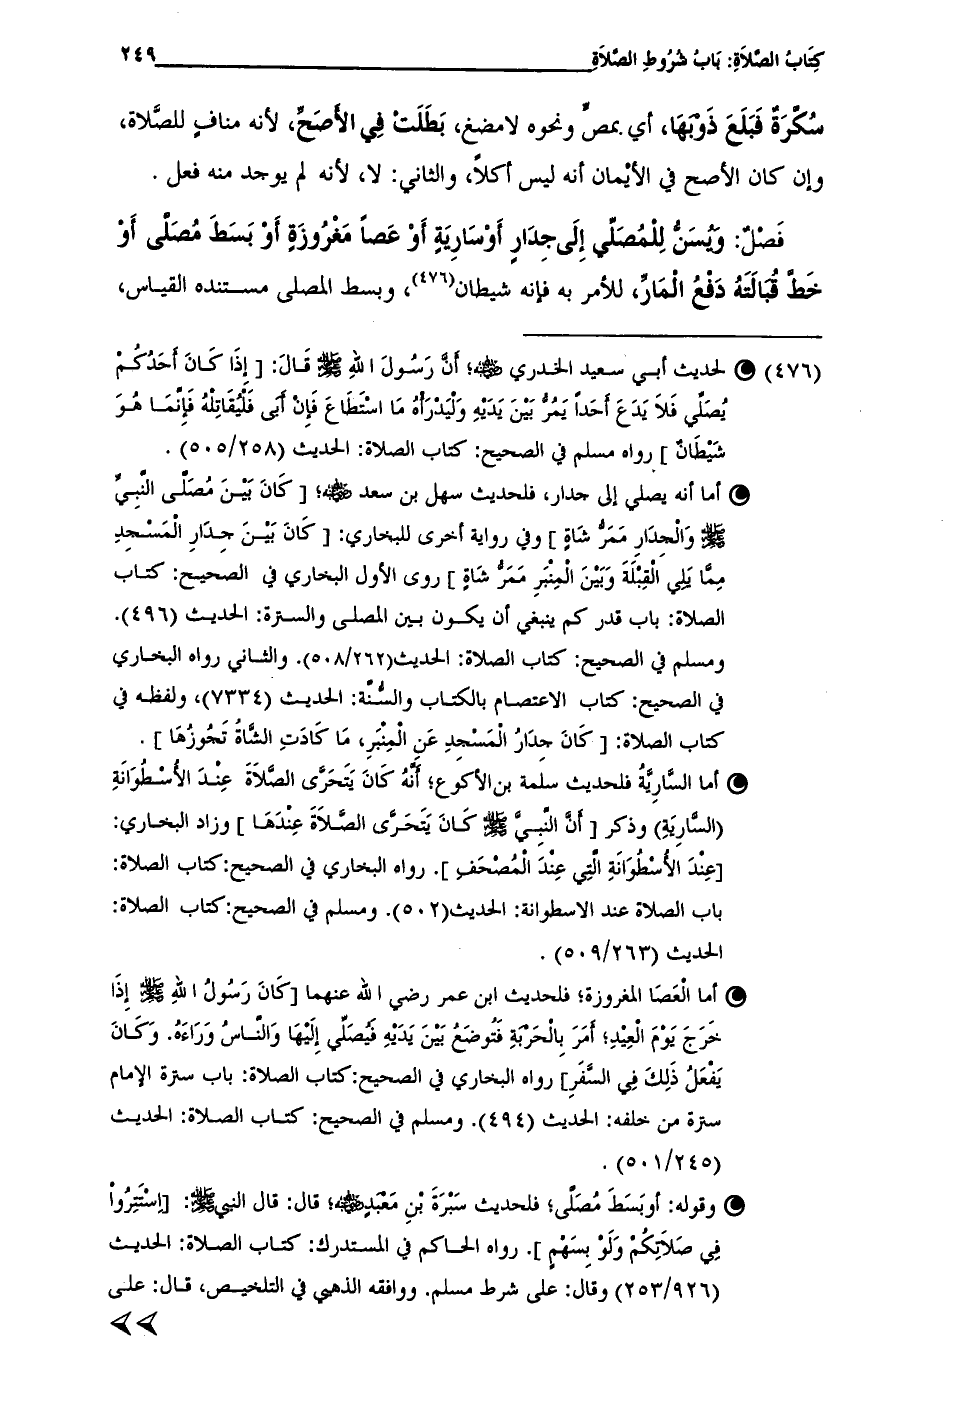 كِتَابُ الصَّلاَةِ: بَابُ شُرُوطِ الصَّلاَةِ ٢٤٩
سُكَّرَةٌ فَبَلَعَ ذَوْبَهَا، أي بمصٍّ ونحوه لامضغ، بَطَلَتْ فِي الأَصَحِّ، لأنه منافٍ للصَّلاة،
وإن كان الأصح في الأيْمان أنه ليس أكلاً، والثاني: لا، لأنه لم يوجد منه فعل .
فَصْلٌ: وَيُسَنُّ لِلْمُصَلِّي إِلَى جِدَارٍ أَوْسَارِيَةٍ أَوْ عَصاً مَغْرُوزَةٍ أَوْ بَسَطَ مُصَلَّى أَوْ
خَطَّ قُبَالَتَهُ دَفْعُ الْمَارِّ، للأمر به فإنه شيطان(٤٧٦)، وبسط المصلى مستنده القياس،
(٤٧٦) لحديث أبي سعيد الخدري ﷺ؛ أَنَّ رَسُولَ اللهِ ﷺ قَالَ: [ إِذَا كَانَ أَحَدُكُمْ
يُصَلِّي فَلاَ يَدَعَ أَحَداً يَمُرُّ بَيْنَ يَدَيْهِ وَلْيَدْرَأْهُ مَا اسْتَطَاعَ فَإِنْ أَبَى فَلْيُقَاتِلْهُ فَإِنَّمَا هُوَ
شَيْطَانٌ ] رواه مسلم في الصحيح: كتاب الصلاة: الحديث (٥٠٥/٢٥٨) .
أما أنه يصلي إلى جدار، فلحديث سهل بن سعد ﷺ؛ [ كَانَ بَيْنَ مُصَلَّى النَّبِيِّ
ﷺ وَالْجِدَارِ مَمَرُّ شَاةٍ ] وفي رواية أخرى للبخاري: [ كَانَ بَيْنَ جِدَارِ الْمَسْجِدِ
مِمَّا يَلِي الْقِبْلَةَ وَبَيْنَ الْمِنْبَرِ مَمَرُّ شَاةٍ ] روى الأول البخاري في الصحيح: كتاب
الصلاة: باب قدر كم ينبغي أن يكون بين المصلى والسترة: الحديث (٤٩٦).
ومسلم في الصحيح: كتاب الصلاة: الحديث(٥٠٨/٢٦٢). والثاني رواه البخاري
في الصحيح: كتاب الاعتصام بالكتاب والسُّنَّة: الحديث (٧٣٣٤)، ولفظه في
كتاب الصلاة: [ كَانَ جِدَارُ الْمَسْجِدِ عَنِ الْمِنْبَرِ، مَا كَادَتِ الشَّاةُ تَحُوزُهَا ] .
أما السَّارِيَّةُ فلحديث سلمة بن الأكوع؛ أَنَّهُ كَانَ يَتَحَرَّى الصَّلاَةَ عِنْدَ الأُسْطُوَانَةِ
(السَّارِيَةِ) وذكر [ أَنَّ النَّبِيَّ ﷺ كَانَ يَتَحَرَّى الصَّلاَةَ عِنْدَهَا ] وزاد البخاري:
[عِنْدَ الأُسْطُوَانَةِ الَّتِي عِنْدَ الْمُصْحَفِ ]. رواه البخاري في الصحيح:كتاب الصلاة:
باب الصلاة عند الاسطوانة: الحديث(٥٠٢). ومسلم في الصحيح:كتاب الصلاة:
الحديث (٥٠٩/٢٦٣) .
أما الْعَصَا المغروزة؛ فلحديث ابن عمر رضي الله عنهما [كَانَ رَسُولُ اللهِ ﷺ إِذَا
خَرَجَ يَوْمَ الْعِيْدِ؛ أَمَرَ بِالْحَرْبَةِ فَتُوضَعُ بَيْنَ يَدَيْهِ فَيُصَلِّي إِلَيْهَا وَالنَّاسُ وَرَاءَهُ. وَكَانَ
يَفْعَلُ ذَلِكَ فِي السَّفَرِ] رواه البخاري في الصحيح:كتاب الصلاة: باب سترة الإمام
سترة من خلفه: الحديث (٤٩٤). ومسلم في الصحيح: كتاب الصلاة: الحديث
(٥٠١/٢٤٥) .
وقوله: أوبَسَطَ مُصَلَّى؛ فلحديث سَبْرَةَ بْنِ مَعْبَدٍﷺ؛ قال: قال النبيﷺ: [اِسْتَتِرُواْ
فِي صَلاَتِكُمْ وَلَوْ بِسَهْمٍ ]. رواه الحاكم في المستدرك: كتاب الصلاة: الحديث
(٢٥٣/٩٢٦) وقال: على شرط مسلم. ووافقه الذهبي في التلخيص، قال: على